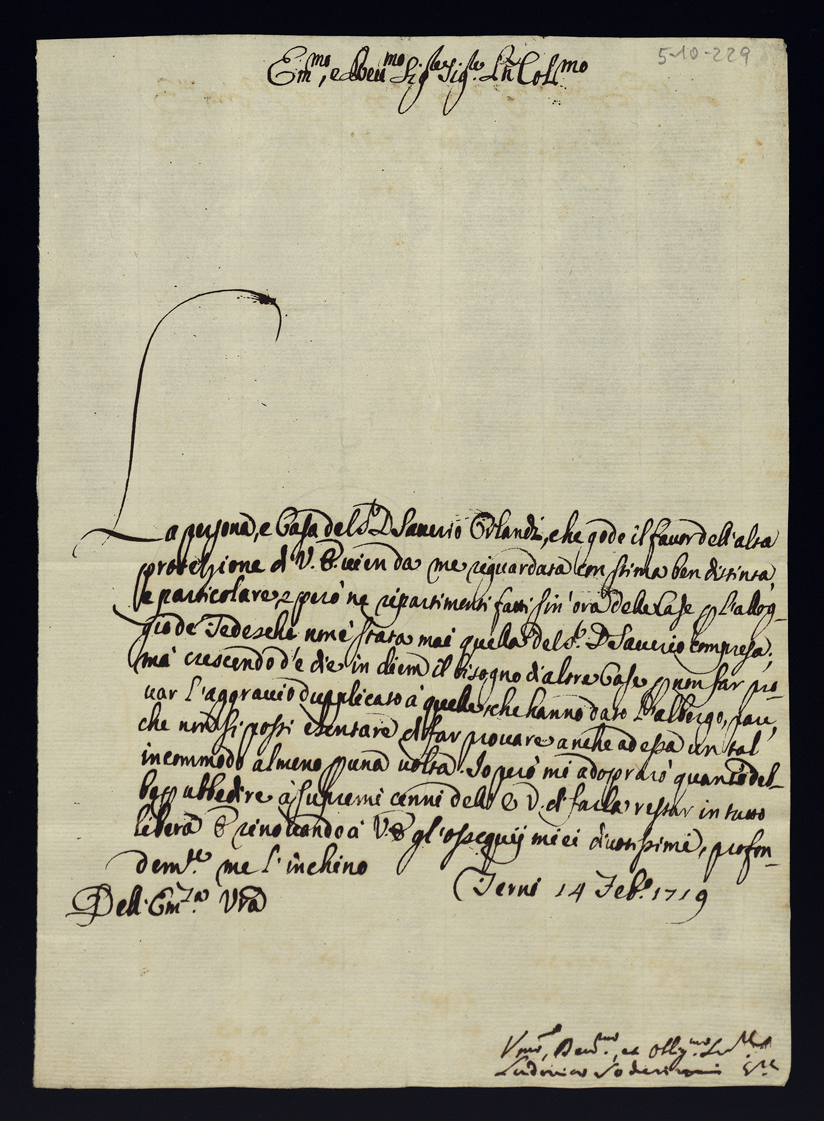 5-10-229
Em.mo, e Reu.mo Sig.re Sig.re Pñ Coll.mo
La persona, e Casa del S.r D Sauerio Orlandi, che gode il favor dell'alta
protezione di V. E. uien da me riguardata con stima ben distinta,
e particolare, e però ne ripartimenti fatti sin'ora delle Case p l'allog-
gio de Tedeschi non è stata mai quella del S.r D Sauerio compresa;
mà crescendo d'e die in diem il bisogno d'altre Case p non far pro-
uar l'aggrauio dupplicato à quelle, che hanno dato l'albergo, pare,
che non si possi esentare di far prouare anche ad essa un tal
incommodo almeno p una uolta. Io però mi adoprarò quanto deb-
bo p ubbedire à supremi cenni dell' E V. di farla restar in tutto
libera E rinouando à V E gl'ossequij miei diuotissimi, profon-
dem.te me l'inchino
Terni 14 Feb.o 1719
Dell' Em.za Vrã
Vmo, Deu.mo, et Obbg.mo
Ludovico Soderini